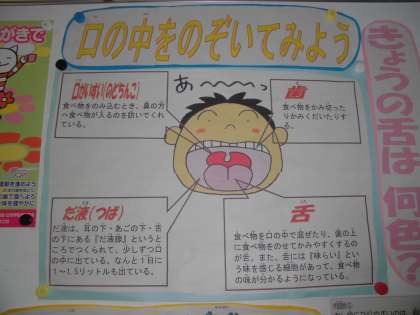 口の中をのぞいてみよう
きょうの舌は何色?
がきで
あ〜〜〜っ
口がいすい(のどちんこ)
食べ物をのみ込むとき、鼻の方
へ食べ物が入るのを防いでくれ
ている。
歯
食べ物をかみ切った
りかみくだいたりす
る。
だ液(つば)
だ液は、耳の下・あごの下・舌
の下にある『だ液腺』というと
ころでつくられて、少しずつ口
の中に出ている。なんと1日に
1〜1.5リットルも出ている。
舌
食べ物を口の中で混ぜたり、歯の上
に食べ物をのせてかみやすくするの
が舌。また、舌には『味らい』とい
う味を感じる細胞があって、食べ物
の味が分かるようになっている。